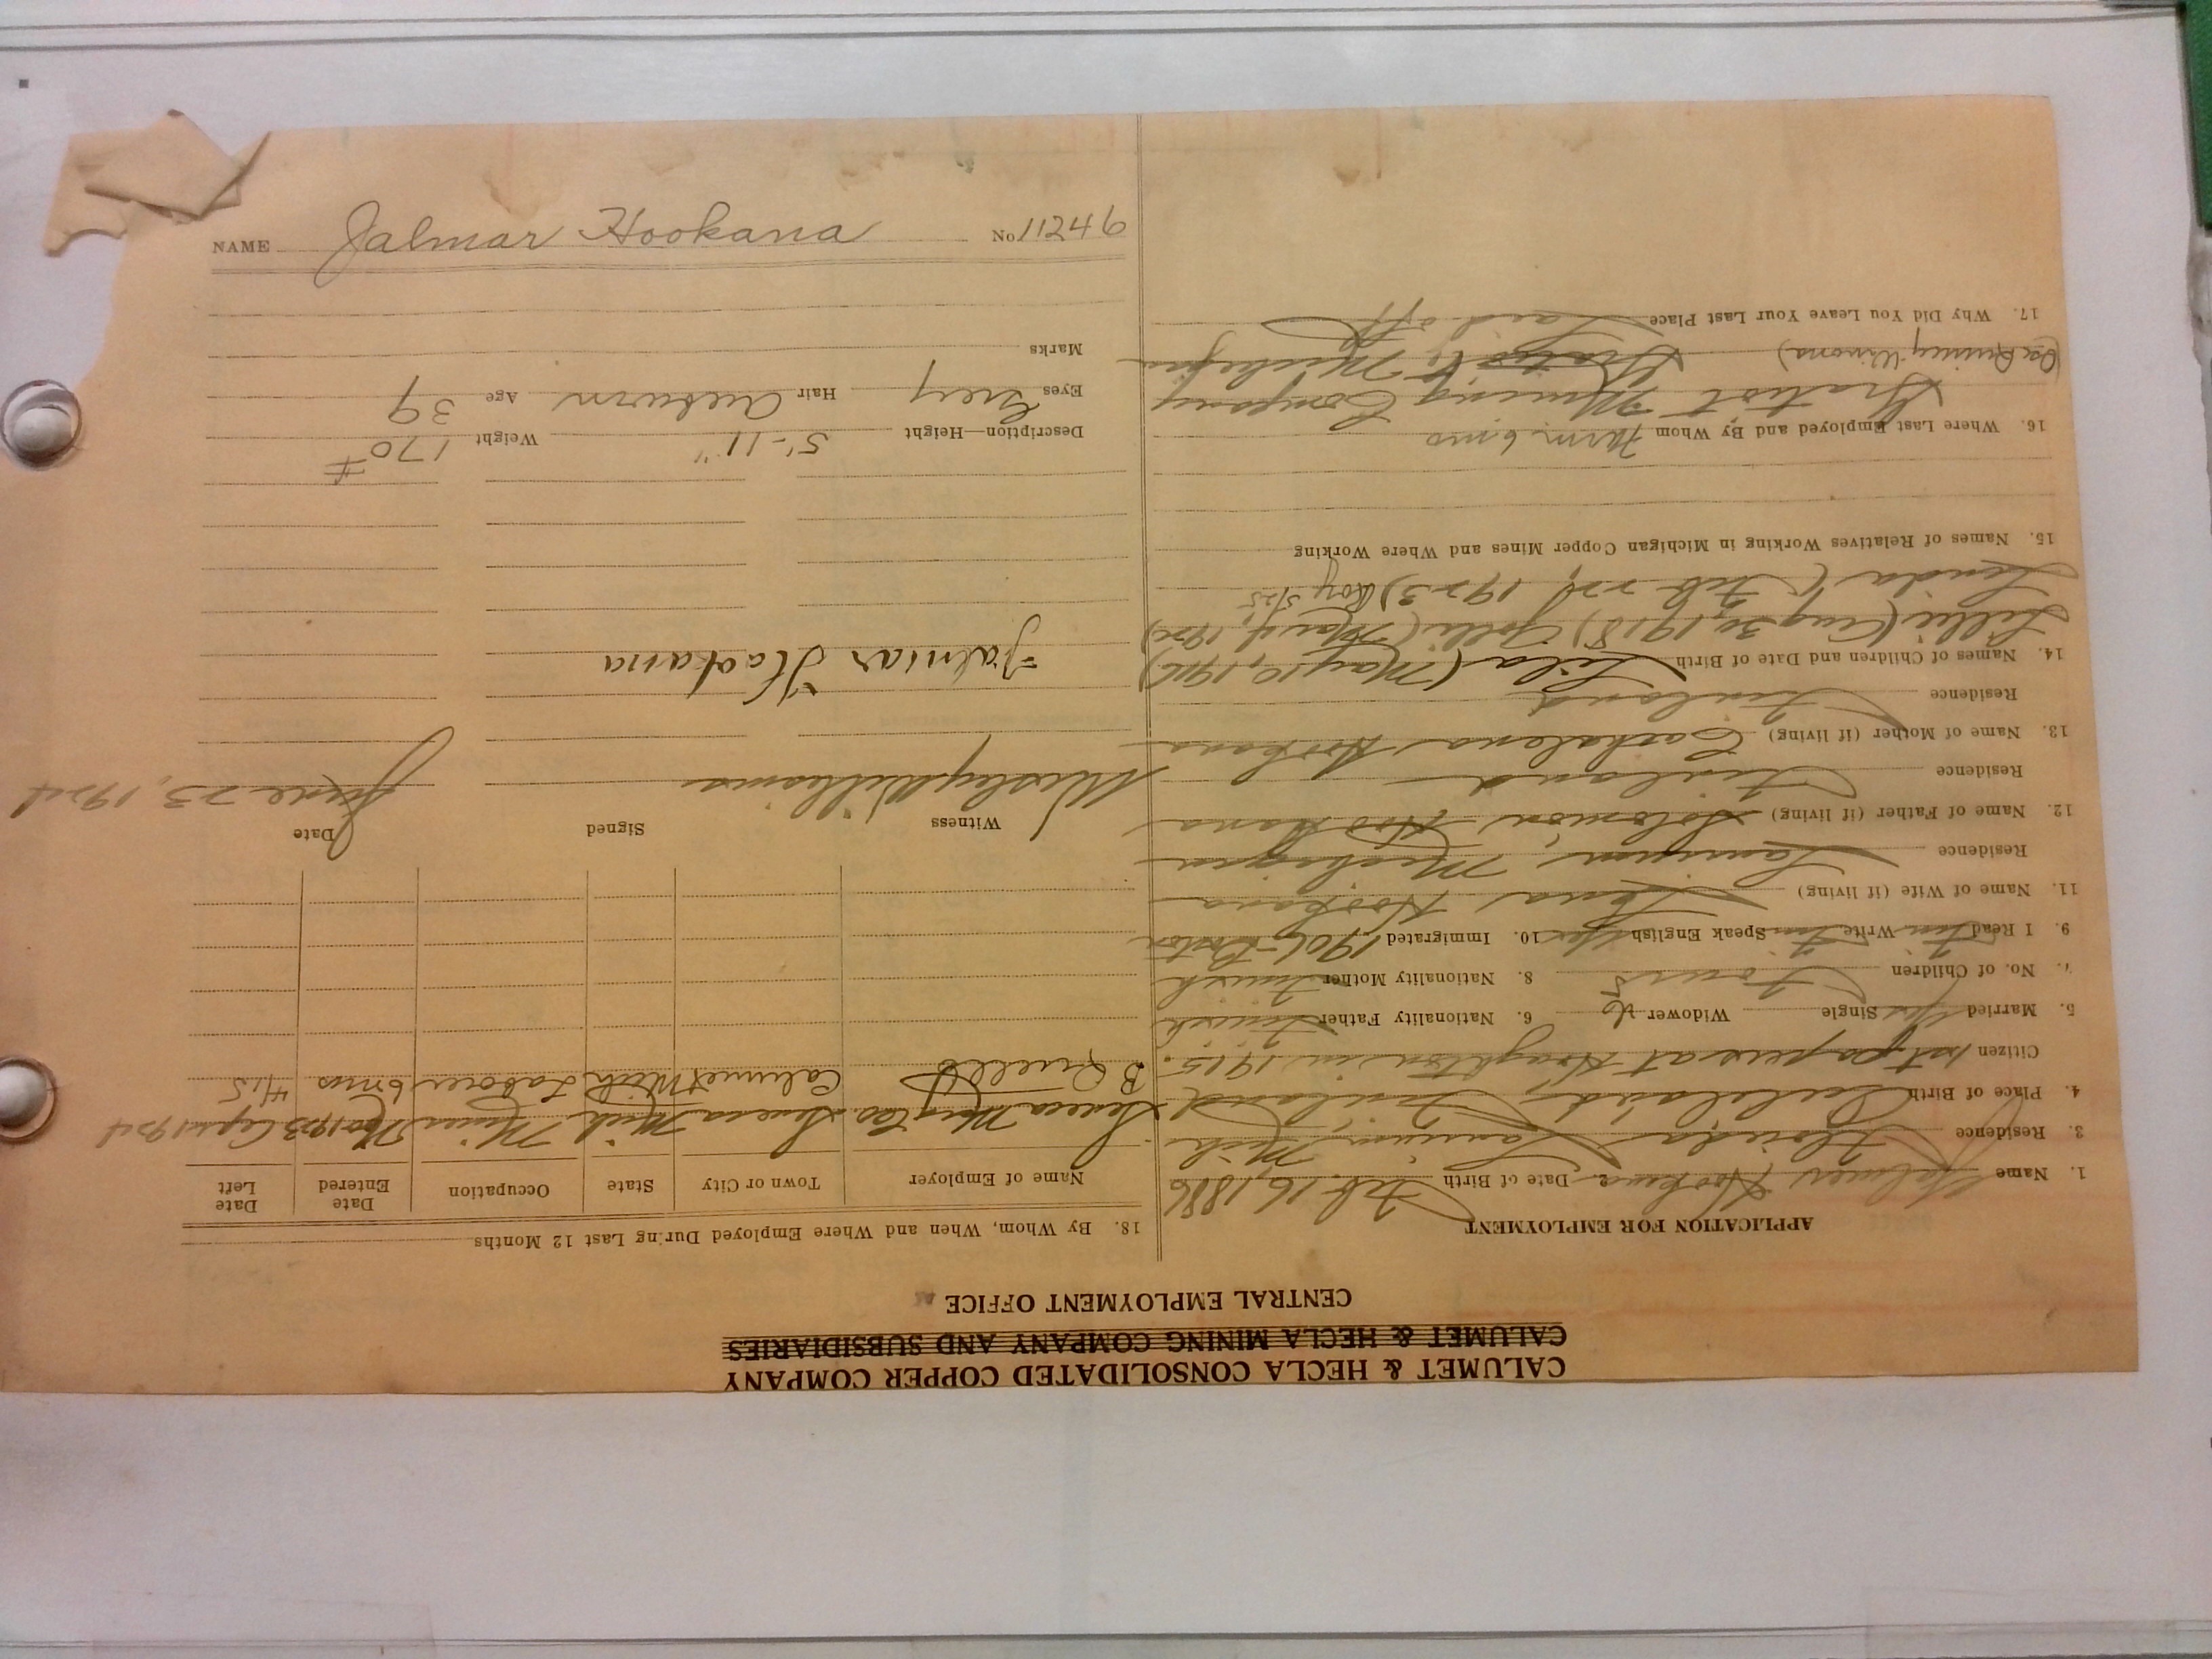 CALUMET & HECLA CONSOLIDATED COPPER COMPANY
CALUMET & HECLA MINING COMPANY AND SUBSIDIARIES
CENTRAL EMPLOYMENT OFFICE
APPLICATION FOR EMPLOYMENT
1. Name Jalmer Hookana 2. Date of Birth Feb. 16, 1886
3. Residence Florida Laurium Mich
4. Place of Birth Finland
Citizen 1st papers at Houghton in 1915.
5. Married Yes Single Widower 6. Nationality Father Finnish
7. No. of Children Four 5 8. Nationality Mother Finnish
9. I Read Finn Write Finn Speak English Yes 10. Immigrated 1906 Boston
11. Name of Wife (if living) Lena Hookana
Residence Laurium, Michigan
12. Name of Father (if living) Solomon Hookana
Residence Finland
13. Name of Mother (if living) Hookana
Residence Finland
14. Names of Children and Date of Birth Lila (May 10, 1916)
Lillie (Aug 30, 1918) (May 4, 1920)
Linda (Feb 22, 1923) Roy 5/25
15. Names of Relatives Working in Michigan Copper Mines and Where Working
16. Where Last Employed and By Whom Farm 6 mo
Gratiot Mining Company
(Quincy Winona) Gratiot, Michigan
17. Why Did You Leave Your Last Place Laid off
18. By Whom, When and Where Employed During Last 12 Months
Name of Employer Town or City State Occupation Date Entered Date Left
Seneca Mng Co. Seneca Mich Miner Nov 1923 Apr 1924
B Calumet Mich Laborer 6 mos 4/15
Witness Signed Date
Wesley Williams June 23, 1924
Jalmar Hookana
Description—Height 5'-11" Weight 170 #
Eyes Grey Hair Auburn Age 39
Marks
NAME Jalmar Hookana No 11246